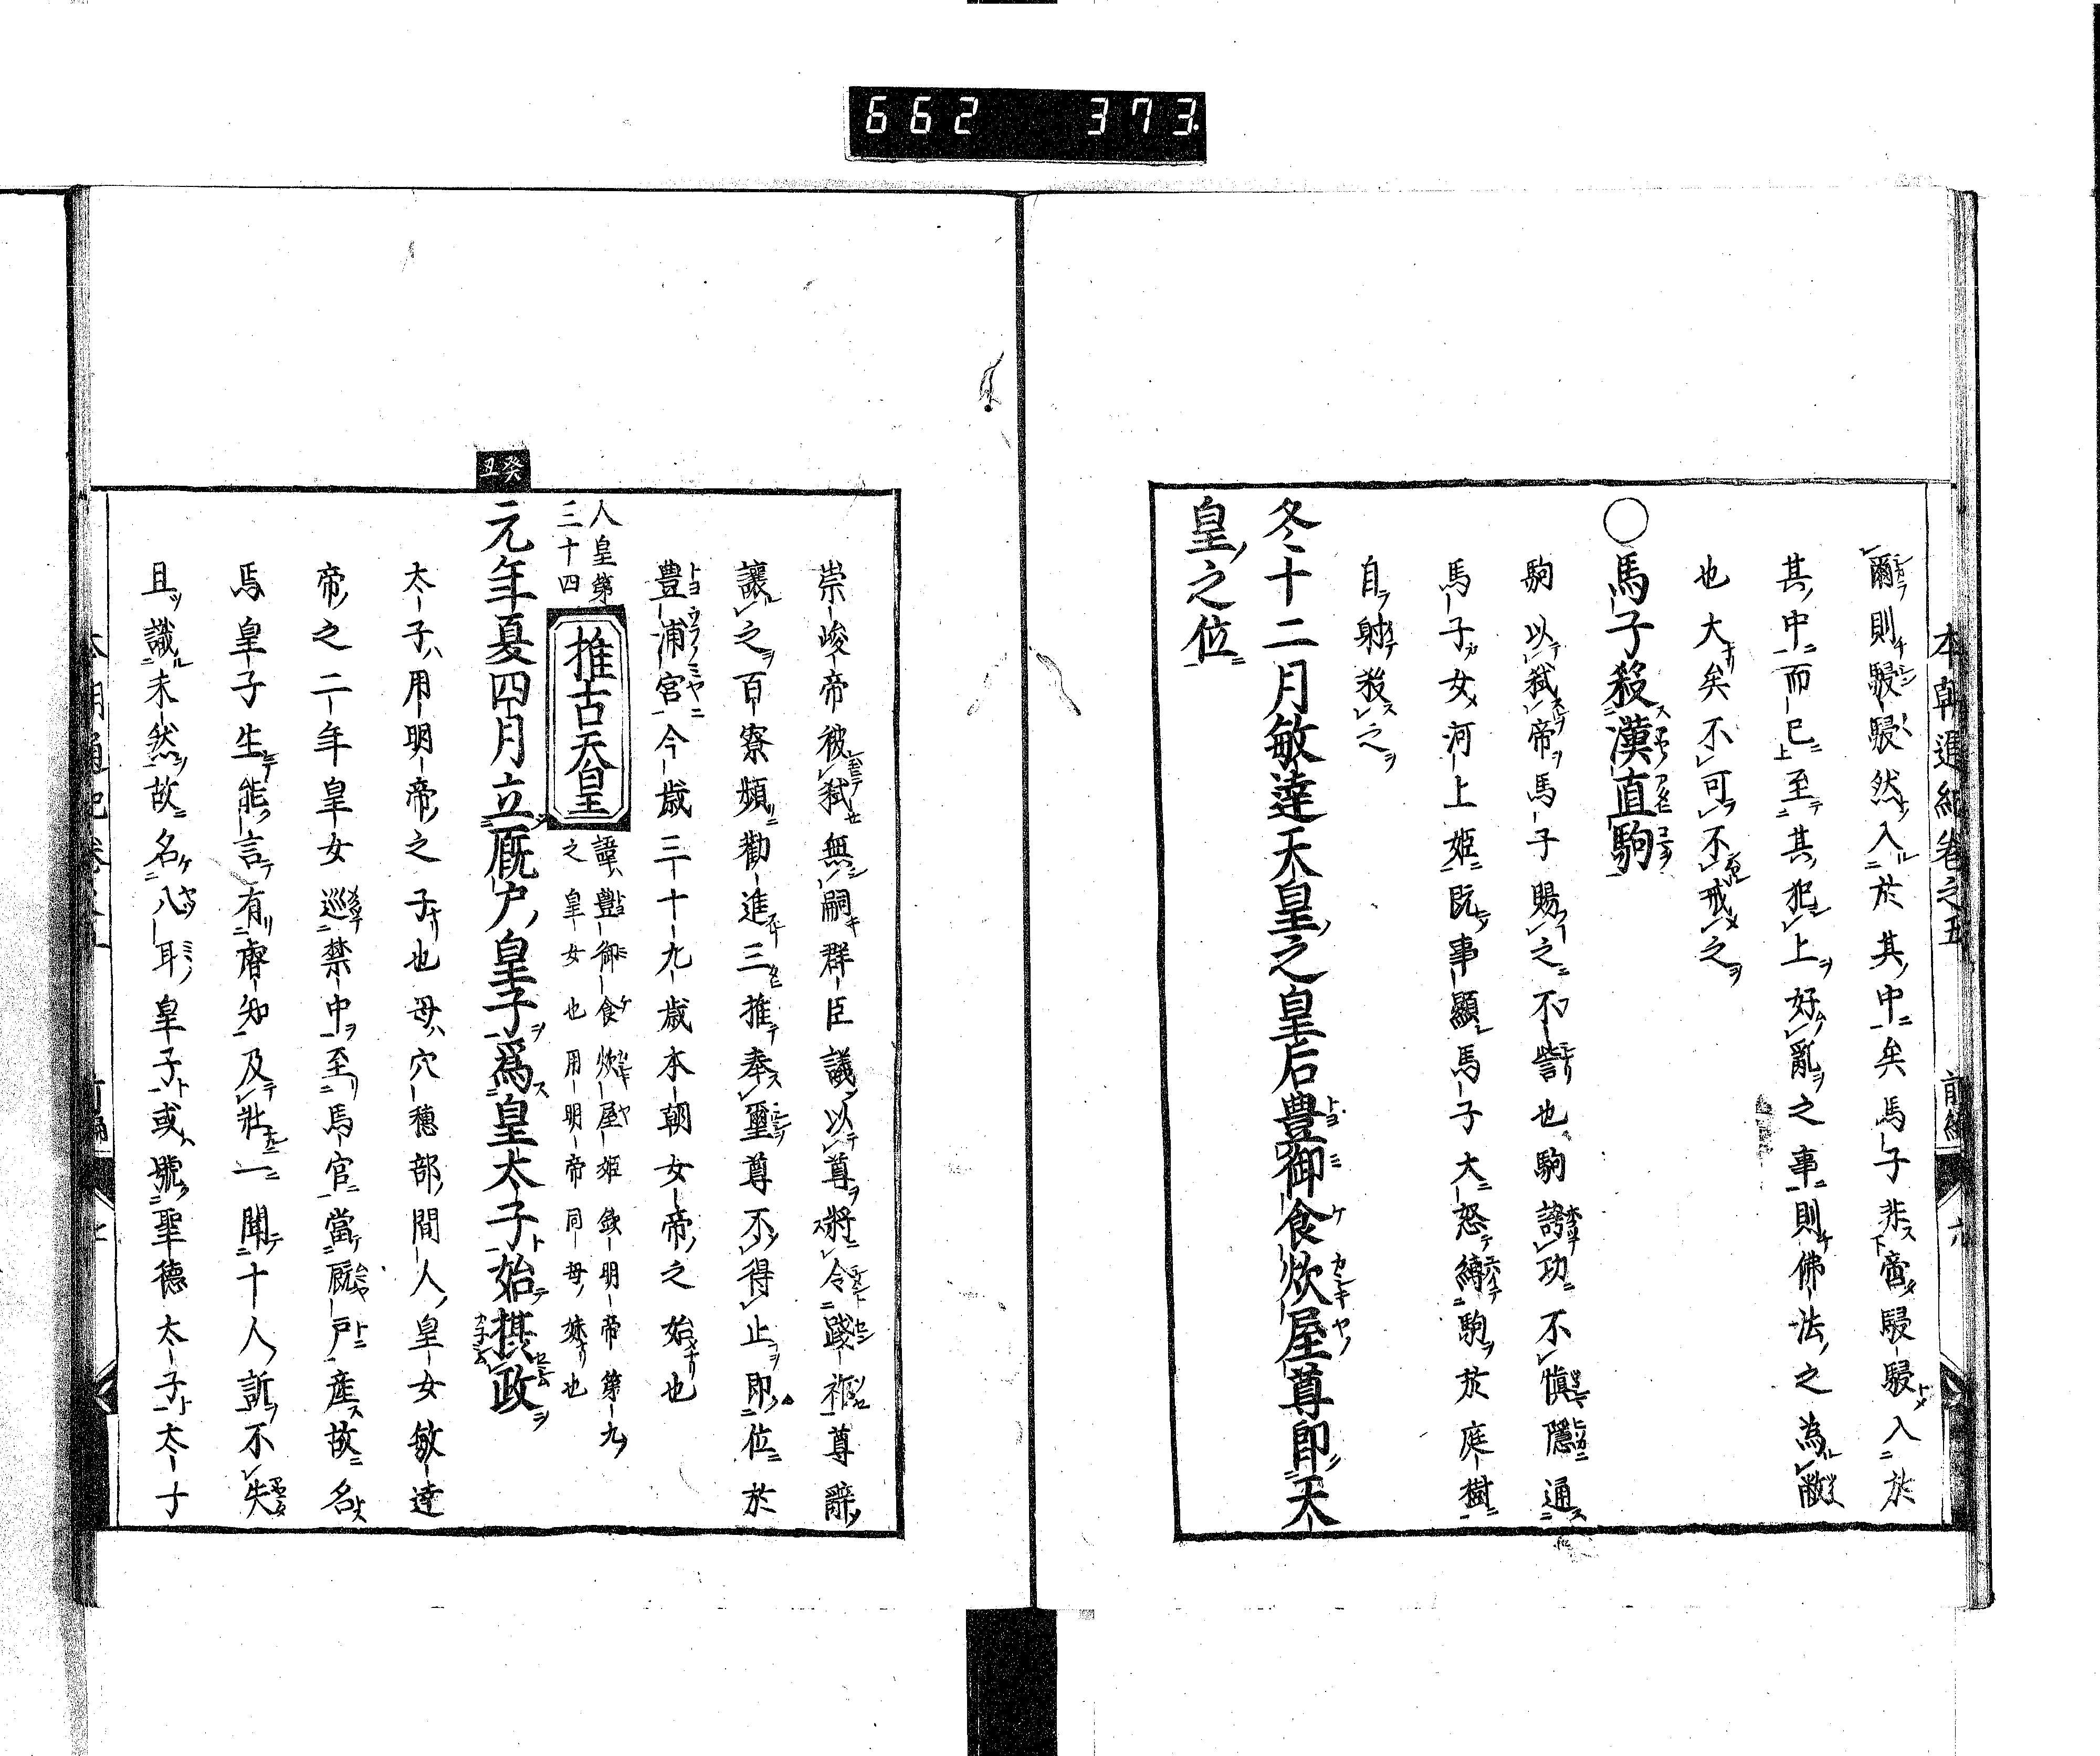 662 373
本朝通紀卷之五 前編 六
爾則駸駸然入於其中矣馬子非啻駸駸入於
其中而已至其犯上好亂之事則佛法之為敝
也大矣不可不戒之
○馬子殺漢直駒
駒以弑帝馬子賜之不訾也駒誇功不愼隱通
馬子女河上姬既事顯馬子大怒縛駒於庭樹
自射殺之
冬十二月敏達天皇之皇后豊御食炊屋尊即天
皇之位
崇峻帝被弑無嗣群臣議以尊將令踐祚尊辭
讓之百寮頻勸進三推奉璽尊不得止即位於
豊浦宮今歳三十九歳本朝女帝之始也
人皇第
三十四
推古天皇
諱豊御食炊屋姬欽明帝第九
之皇女也用明帝同母妹也
癸丑
元年夏四月立厩戸皇子爲皇太子始摂政
太子用明帝之子也母穴穗部間人皇女敏達
帝之二年皇女巡禁中至馬官當厩戸産故名
焉皇子生能言有睿知及壯一聞十人訴不失
且識未然故名八耳皇子或號聖德太子太子
本朝通紀卷之五 前編 七